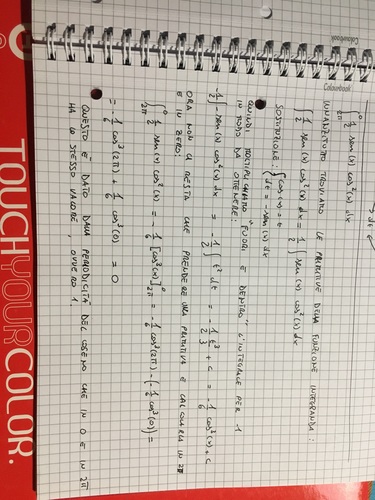 ∫_{2π}^{0} sen(x) cos²(x) dx
INNANZITUTTO TROVIAMO LE PRIMITIVE DELLA FUNZIONE INTEGRANDA:
∫ 1/2 sen(x) cos²(x) dx = 1/2 ∫ sen(x) cos²(x) dx
SOSTITUZIONE: { cos(x) = t
dt = -sen(x) dx
QUINDI MOLTIPLICHIAMO "FUORI E DENTRO" L'INTEGRALE PER -1
IN MODO DA OTTENERE:
-1/2 ∫ -sen(x) cos²(x) dx = -1/2 ∫ t² dt = -1/2 t³/3 + c = -1/6 cos³(x) + c
ORA NON CI RESTA CHE PRENDERE UNA PRIMITIVA E CALCOLARLA IN 2π
E IN ZERO:
∫_{2π}^{0} 1/2 sen(x) cos²(x) = -1/6 [cos³(x)]_{2π}^{0} = -1/6 cos³(2π) - (-1/6 cos³(0)) =
= -1/6 cos³(2π) + 1/6 cos³(0) = 0
QUESTO È DATO DALLA PERIODICITÀ DEL COSENO CHE IN 0 E IN 2π
HA LO STESSO VALORE, OVVERO 1.
TOUCHYOURCOLOR.
Colourbook